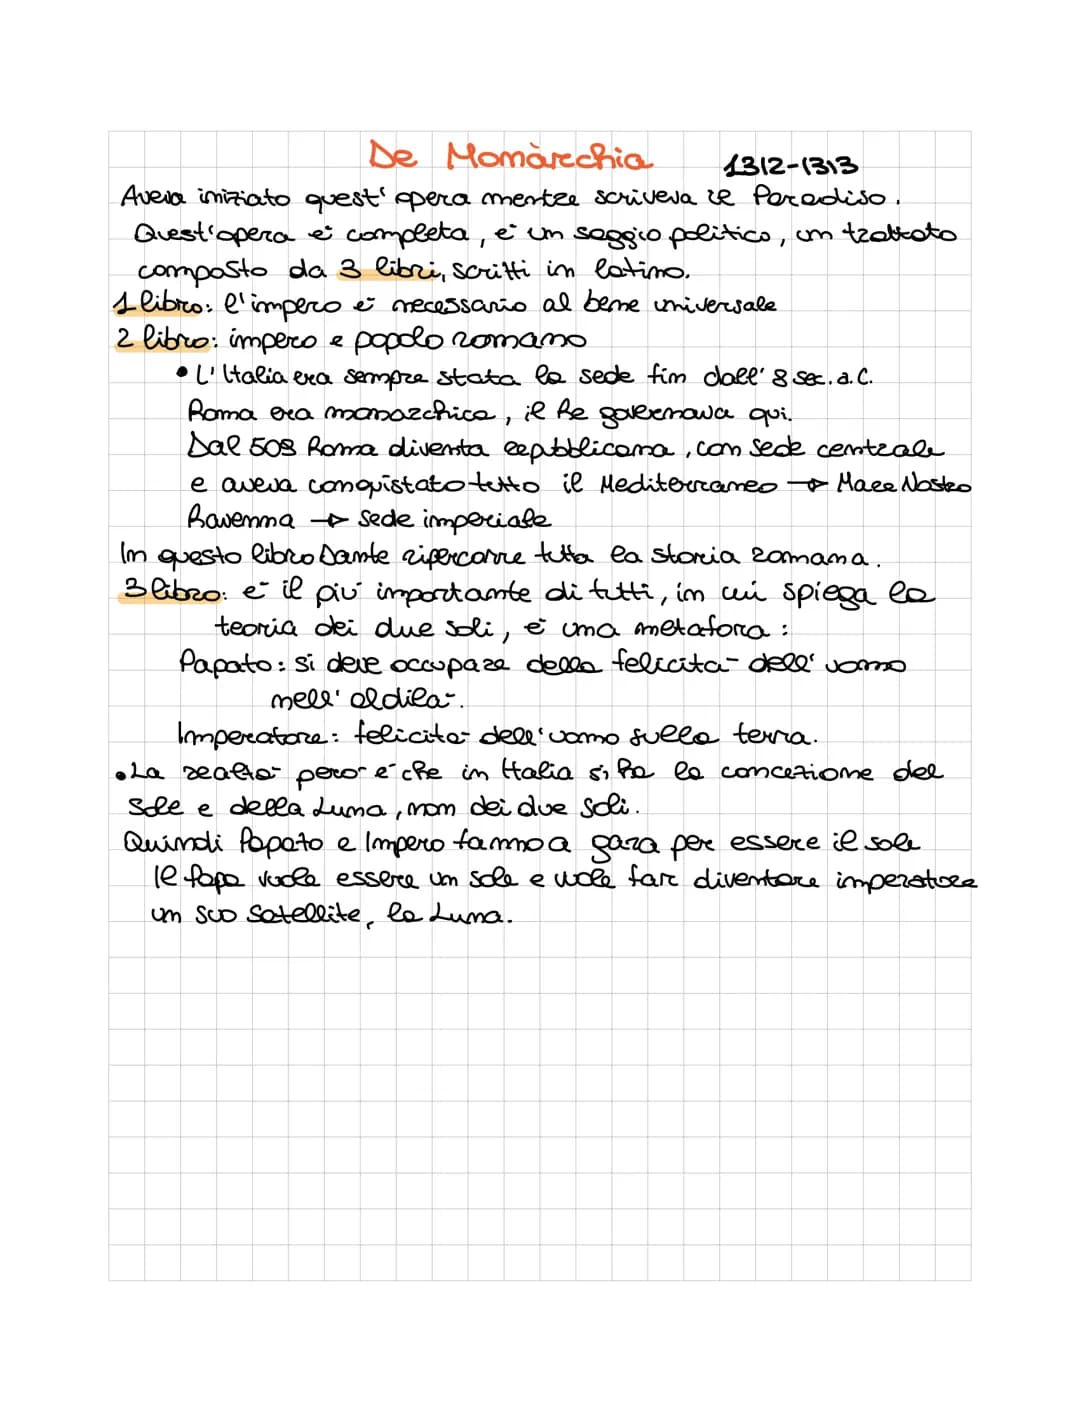 De Monàrchia 1312-1313
Aveva iniziato quest'opera mentre scriveva il Paradiso.
Quest'opera è completa, è un saggio politico, un trattato
composto da 3 libri, scritti in latino.
1 libro: l'impero è necessario al bene universale
2 libro: impero e popolo romano
• L'Italia era sempre stata la sede fin dall'8 sec. a.C.
Roma era monarchica, il Re governava qui.
Dal 509 Roma diventa repubblicana, con sede centrale
e aveva conquistato tutto il Mediterraneo → Mare Nostro
Ravenna → Sede imperiale
In questo libro Dante ripercorre tutta la storia romana.
3 libro: è il più importante di tutti, in cui spiega la
teoria dei due soli, è una metafora:
Papato: si deve occupare della felicità dell'uomo
nell'aldilà.
Imperatore: felicità dell'uomo sulla terra.
• La realtà però è che in Italia si ha la concezione del
Sole e della Luna, non dei due Soli.
Quindi Papato e Impero fanno a gara per essere il sole
Il Papa vuole essere un sole e vuole far diventare imperatore
un suo satellite, la Luna.